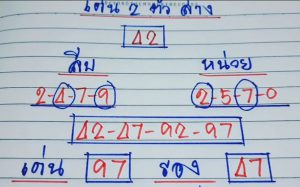 เด่น 2 ตัว ล่าง
42
สิบ หน่วย
2-4-7-9 2-5-7-0
42-47-92-97
เด่น 97 รอง 47